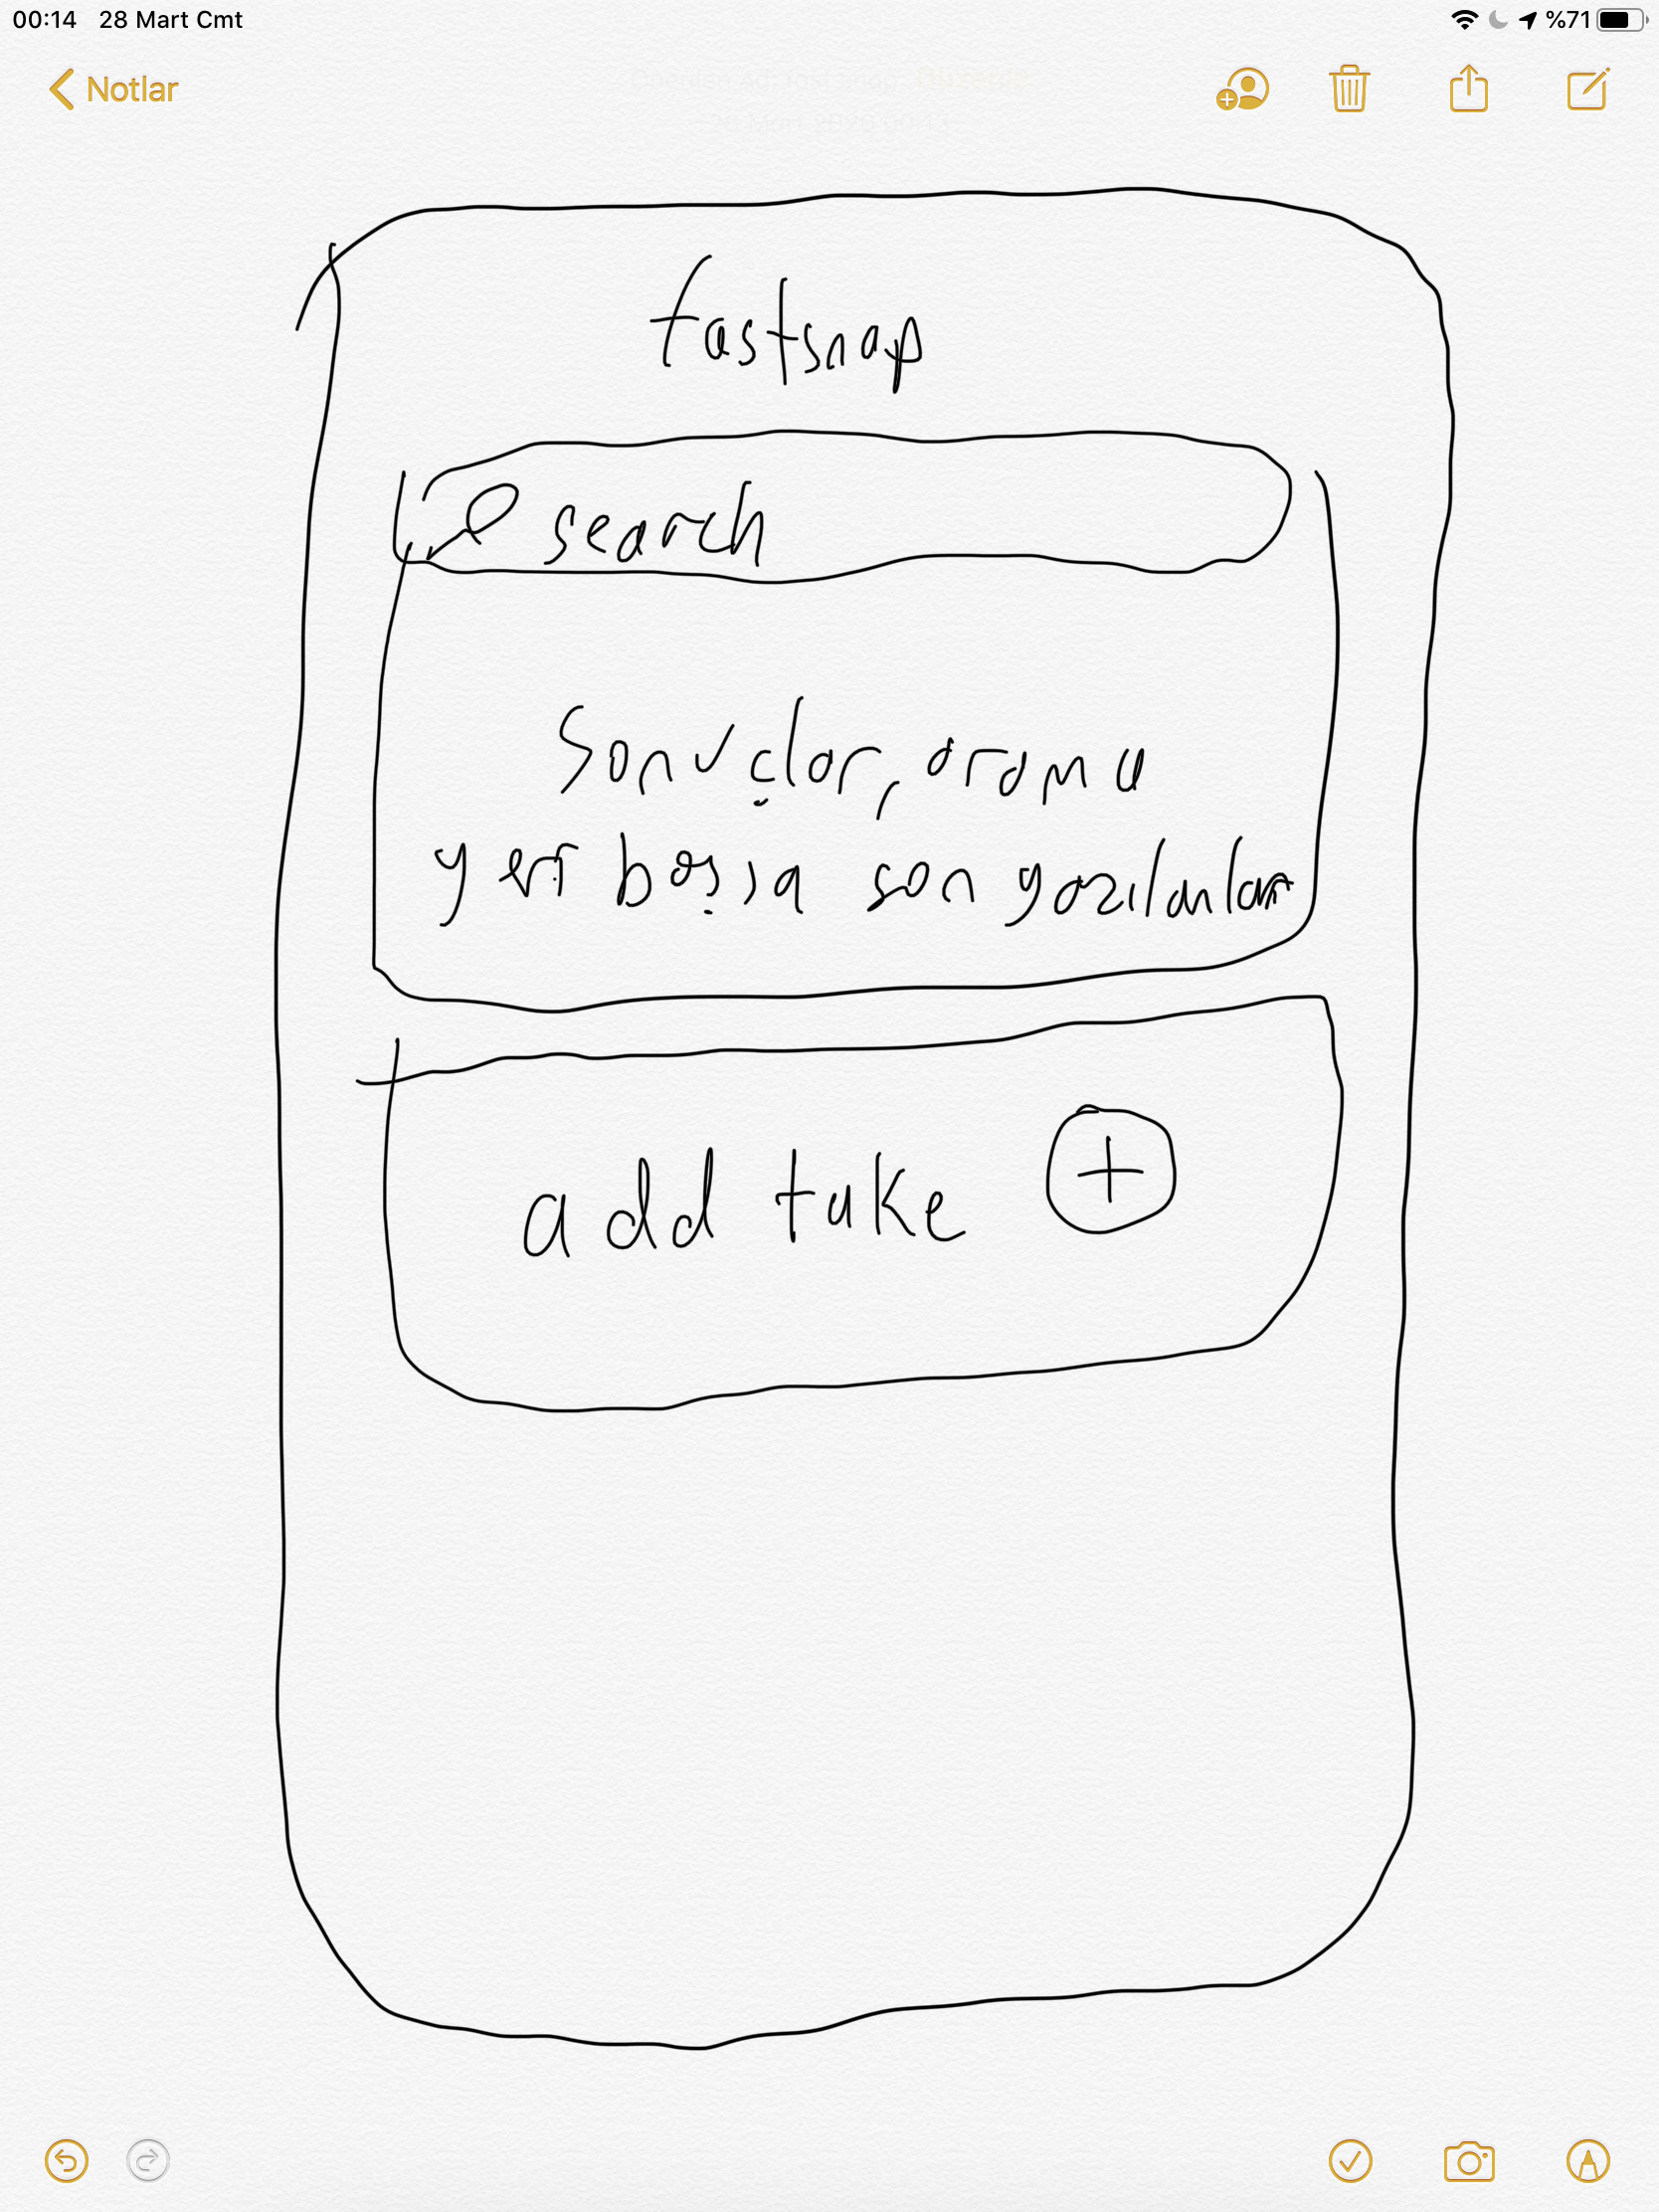 00:14 28 Mart Cmt %71
Notlar
fastsnap
search
Sonuçlar, arama
yeri boşsa son yazılanlar
add take +